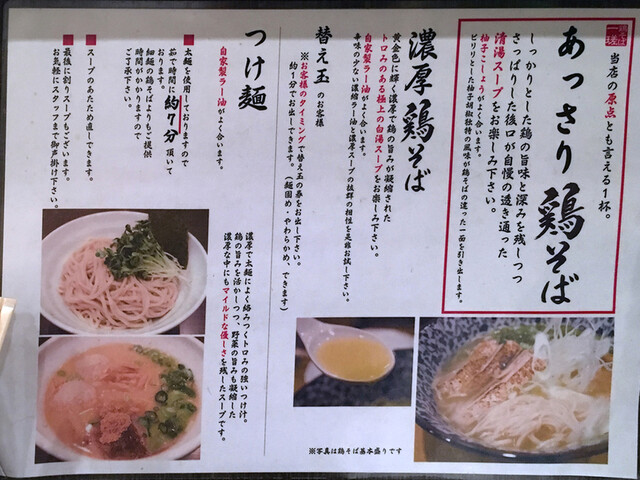 鶏そば
一瑳
当店の原点とも言える1杯。
あっさり鶏そば
しっかりとした鶏の旨味と深みを残しつつ
さっぱりした後口が自慢の透き通った
清湯スープをお楽しみ下さい。
柚子こしょうがよく合います。
ピリリとした柚子胡椒独特の風味が鶏そばの違った一面を引き出します。
濃厚鶏そば
黄金色に輝く濃厚で鶏の旨みが凝縮された
トロみのある極上の白湯スープをお楽しみ下さい。
自家製ラー油がよく合います。
辛味の少ない濃縮ラー油と濃厚スープの抜群の相性を是非お試し下さい。
替え玉のお客様
※お客様のタイミングで替え玉の券をお出し下さい。
約1分でお出しできます。(麺固め・やわらかめ、できます)
つけ麺
自家製ラー油がよく合います。
■太麺を使用しておりますので
茹で時間に約7分頂いて
おります。
細麺の鶏そばよりもご提供
時間がかかりますので
ご了承下さい。
■スープのあたため直しできます。
■最後に割りスープもございます。
お気軽にスタッフまで御声掛け下さい。
濃厚で太麺によく絡みつくトロみの強いつけ汁。
鶏の旨みを活かしつつ、野菜の旨みも凝縮した
濃厚な中にもマイルドな優しさを残したスープです。
※写真は鶏そば基本盛りです